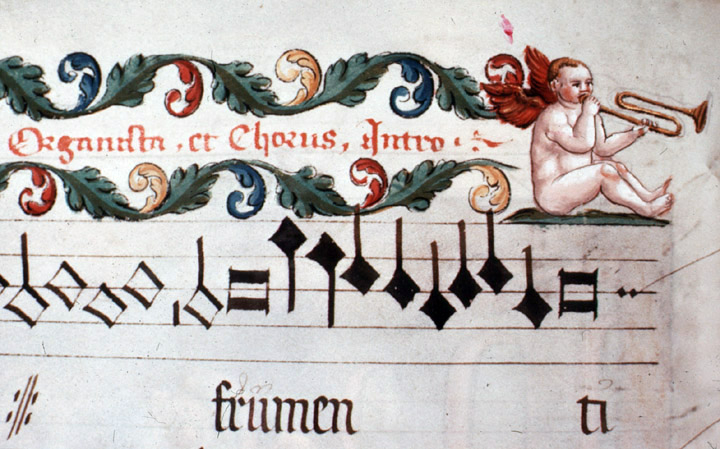 Organista, et Chorus, Intro
frumen ti